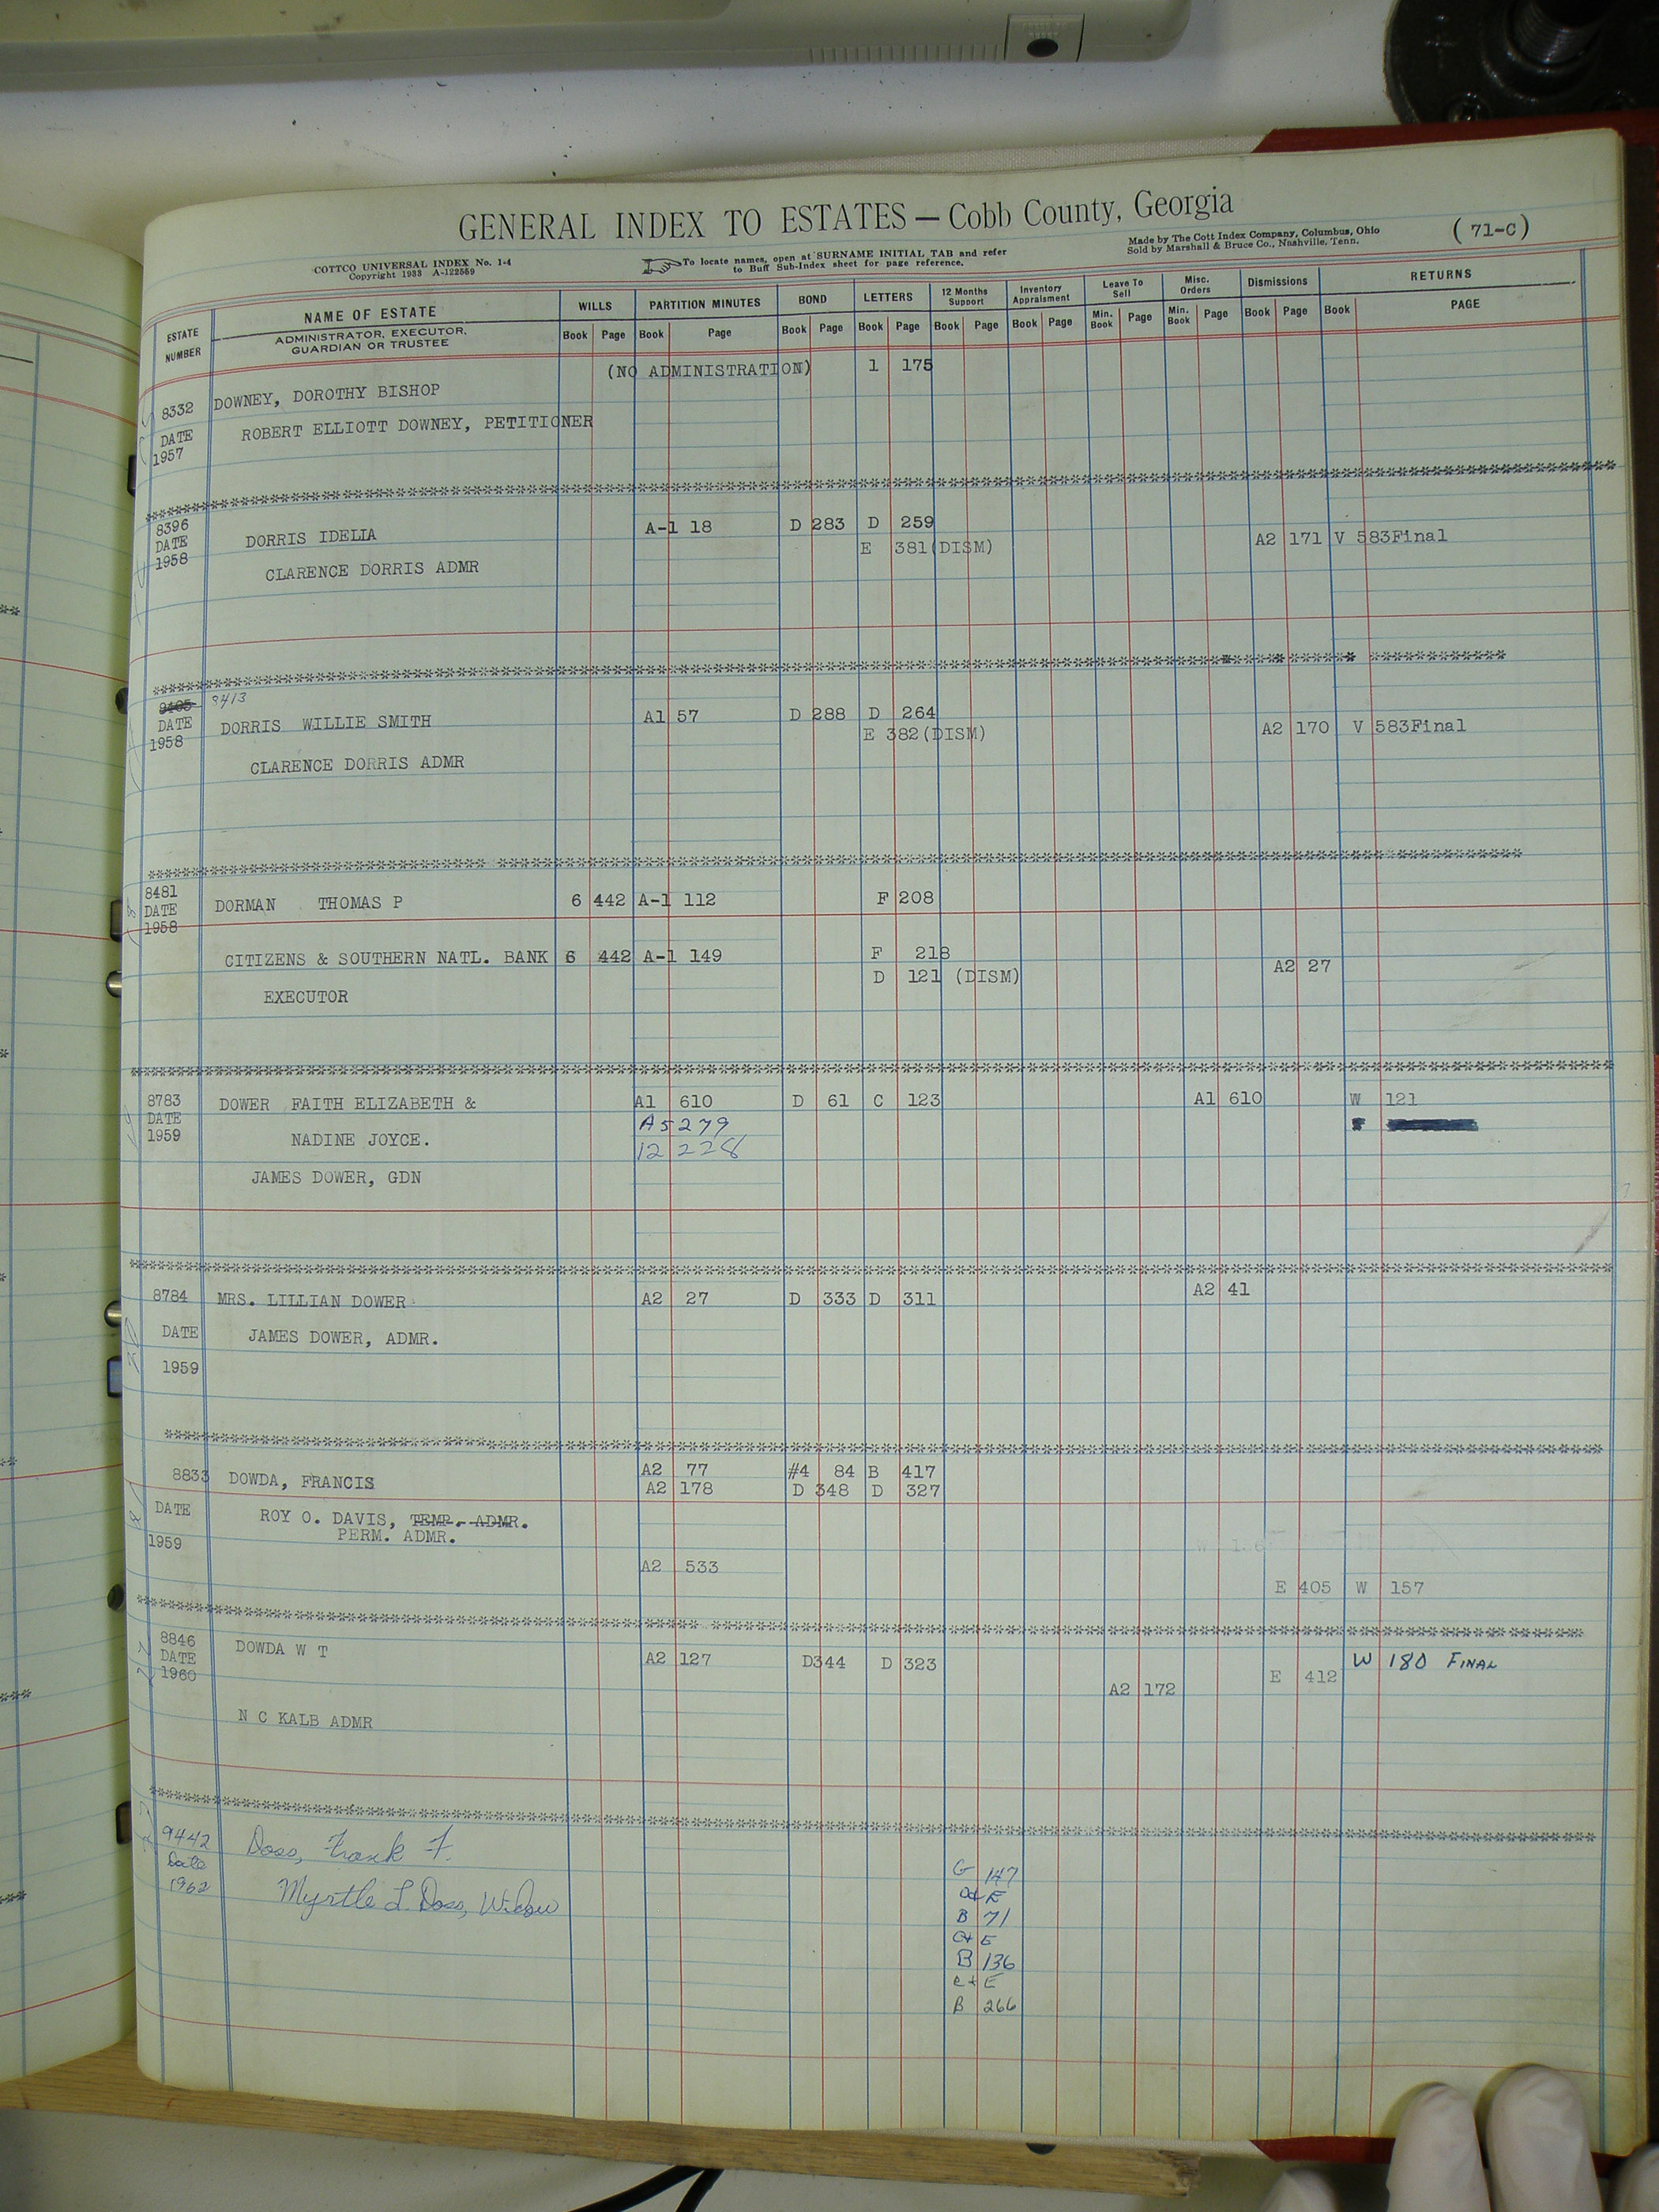 GENERAL INDEX TO ESTATES — Cobb County, Georgia
(71-C)
COTTCO UNIVERSAL INDEX No. 1-4
Copyright 1933 A-122559
To locate names, open at SURNAME INITIAL TAB and refer
to Buff Sub-Index sheet for page reference.
Made by The Cott Index Company, Columbus, Ohio
Sold by Marshall & Bruce Co., Nashville, Tenn.
ESTATE NUMBER NAME OF ESTATE WILLS PARTITION MINUTES BOND LETTERS 12 Months Support Inventory Appraisment Leave To Sell Misc. Orders Dismissions RETURNS
ADMINISTRATOR, EXECUTOR, GUARDIAN OR TRUSTEE Book Page Book Page Book Page Book Page Book Page Book Page Min. Book Page Min. Book Page Book Page Book PAGE
(NO ADMINISTRATION) 1 175
8332 DOWNEY, DOROTHY BISHOP
DATE ROBERT ELLIOTT DOWNEY, PETITIONER
1957
8396 A-1 18 D 283 D 259
DATE DORRIS IDELIA E 381(DISM) A2 171 V 583Final
1958 CLARENCE DORRIS ADMR
8405 8413
DATE DORRIS WILLIE SMITH A1 57 D 288 D 264 A2 170 V 583Final
1958 E 382(DISM)
CLARENCE DORRIS ADMR
8481
DATE DORMAN THOMAS P 6 442 A-1 112 F 208
1958
CITIZENS & SOUTHERN NATL. BANK 6 442 A-1 149 F 218 A2 27
D 121 (DISM)
EXECUTOR
8783 DOWER FAITH ELIZABETH & A1 610 D 61 C 123 A1 610 W 121
DATE A5 279
1959 NADINE JOYCE. 12 228
JAMES DOWER, GDN
8784 MRS. LILLIAN DOWER A2 27 D 333 D 311 A2 41
DATE JAMES DOWER, ADMR.
1959
8833 DOWDA, FRANCIS A2 77 #4 84 B 417
A2 178 D 348 D 327
DATE ROY O. DAVIS, TEMP. ADMR.
PERM. ADMR.
1959
A2 533
E 405 W 157
8846 DOWDA W T A2 127 D344 D 323 W 180 FINAL
DATE
1960 A2 172 E 412
N C KALB ADMR
9442 Doss, Frank F.
Date G 147
1962 Myrtle L. Doss, Widow
B 71
B 136
B 266